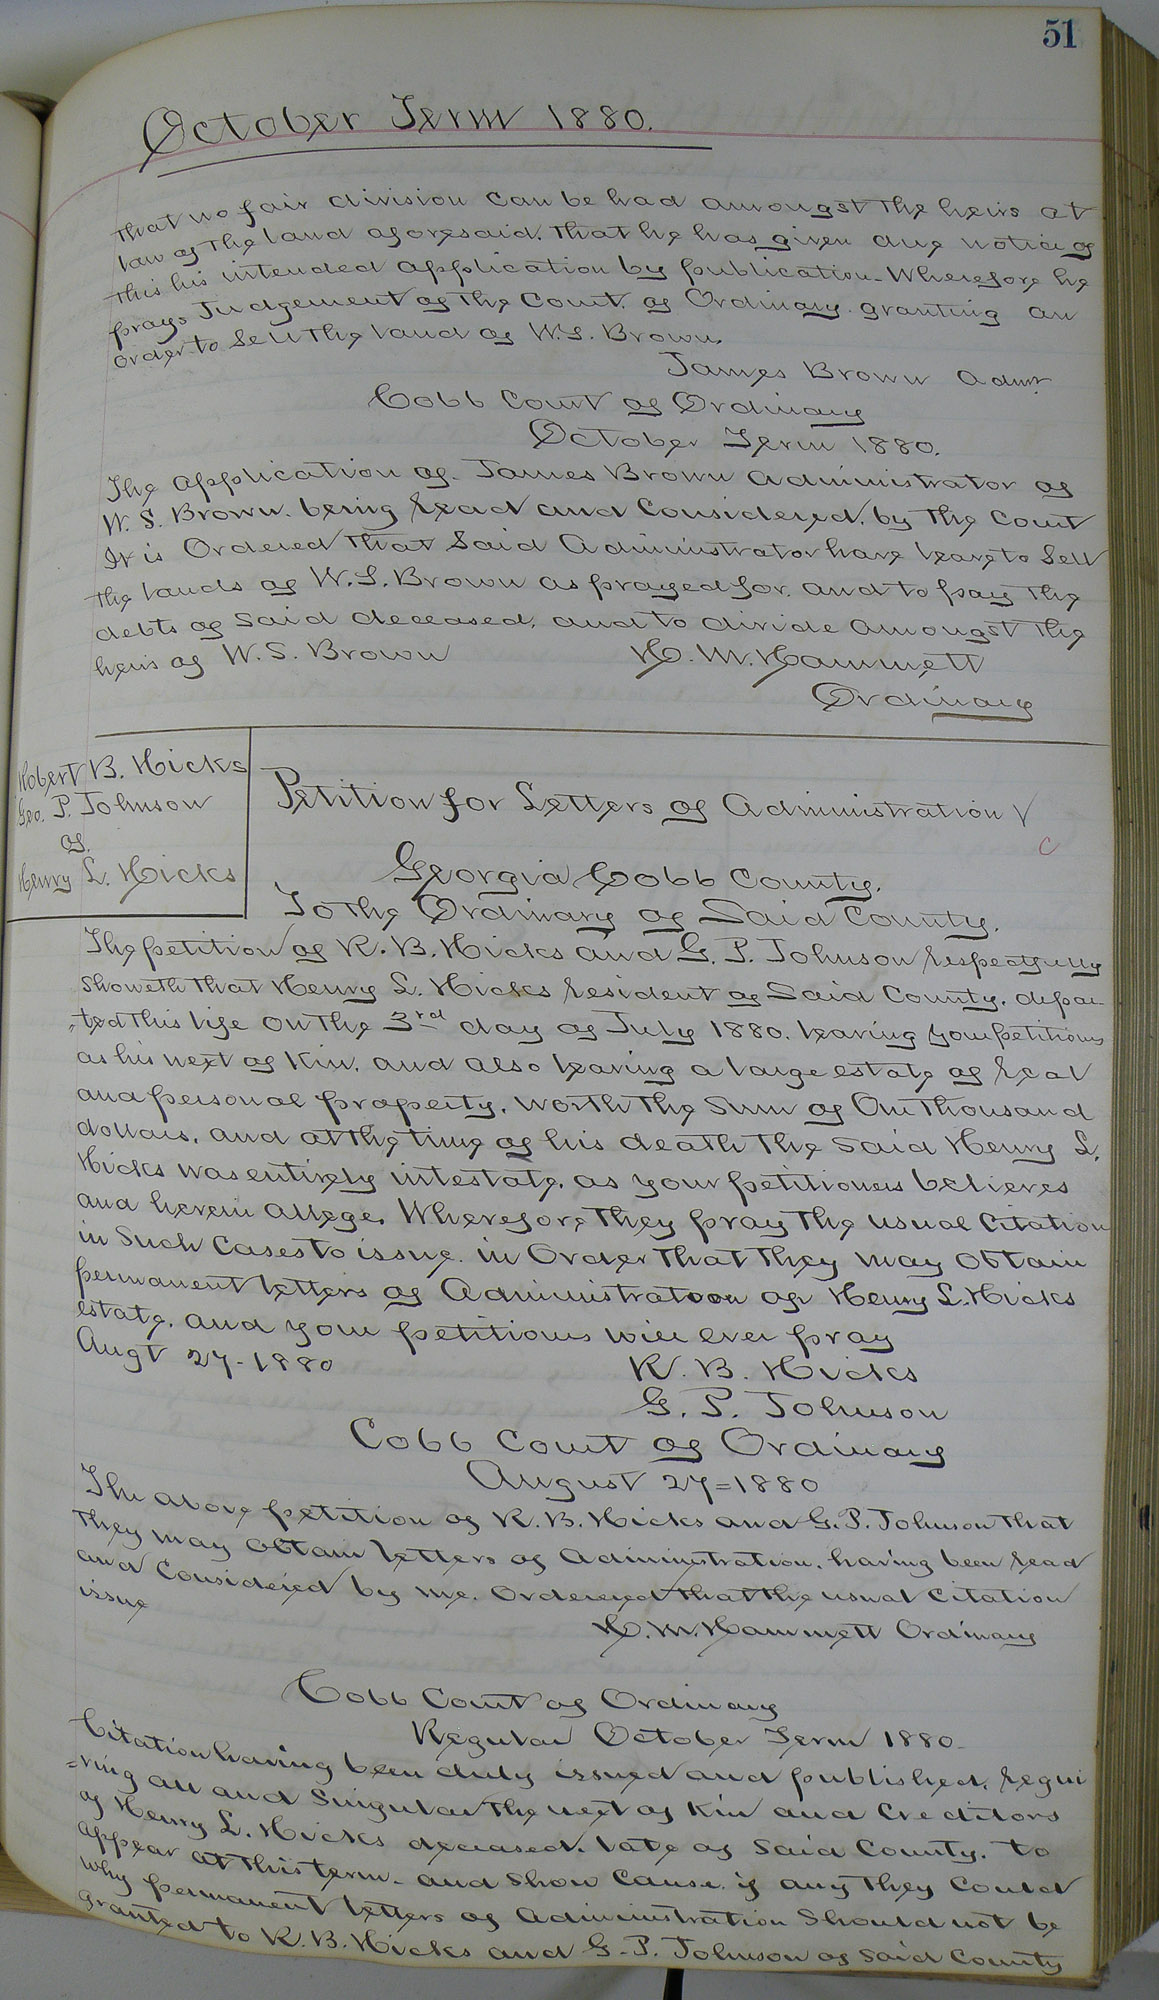 51
October Term 1880.
that no fair division can be had amongst the heirs at
law of the land aforesaid, that he has given due notice of
this his intended application by publication. Wherefore he
prays Judgement of the Court of Ordinary granting an
order to Sell the land of W. S. Brown.
James Brown Admr.
Cobb Court of Ordinary
October Term 1880.
The application of James Brown Administrator of
W. S. Brown. being read and Considered, by the Court
It is Ordered that Said Administrator have leave to Sell
the lands of W. S. Brown as prayed for. and to pay the
debts of Said deceased, and to divide amongst the
heirs of W. S. Brown
H. M. Hammett
Ordinary
Robert B. Hicks
Geo. P. Johnson
of
Henry L. Hicks
Petition for Letters of Administration √
C
Georgia Cobb County.
To the Ordinary of Said County.
The petition of R. B. Hicks and G. P. Johnson respectfully
Showeth that Henry L. Hicks resident of Said County, depar
-ted this life on the 3rd day of July 1880. leaving your petitions
as his next of kin, and also leaving a large estate of real
and personal property, worth the Sum of One thousand
dollars, and at the time of his death the said Henry L.
Hicks was entirely intestate, as your petitioners believes
and herein allege. Wherefore they pray the usual Citation
in Such Cases to issue in Order that they may obtain
permanent letters of Administration of Henry L. Hicks
estate, and your petitions will ever pray
Augt 27-1880
R. B. Hicks
G. P. Johnson
Cobb Court of Ordinary
August 27=1880
The above petition of R. B. Hicks and G. P. Johnson that
they may obtain letters of Administration, having been read
and Considered by me. Ordered that the usual Citation
issue
H. M. Hammett Ordinary
Cobb Court of Ordinary
Regular October Term 1880.
Citation having been duly issued and published, requi
=ring all and Singular the next of Kin and Creditors
of Henry L. Hicks deceased. late of Said County. to
appear at this term. and Show Cause if any they Could
why permanent letters of Administration Should not be
granted to R. B. Hicks and G. P. Johnson of said County